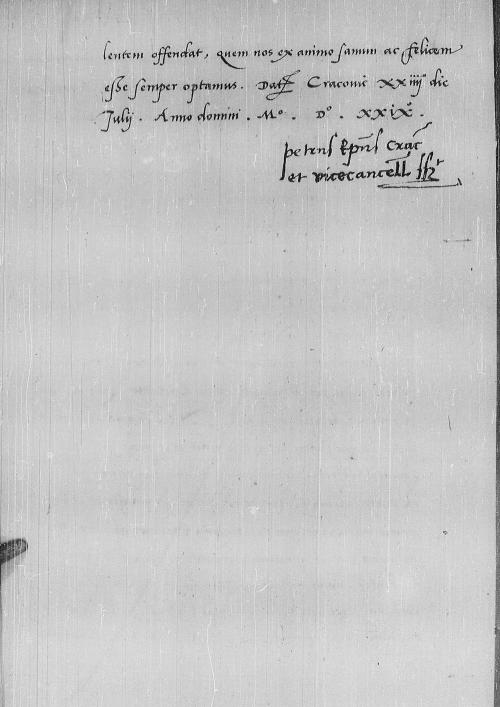 lentem offendat, quem nos ex animo sanum ac felicem
esse semper optamus. Dat Cracovie XXiiij die
Julij. Anno domini. Mº. Dº. XXIXº.
petrus Epūs Crac
et vicecancell sst